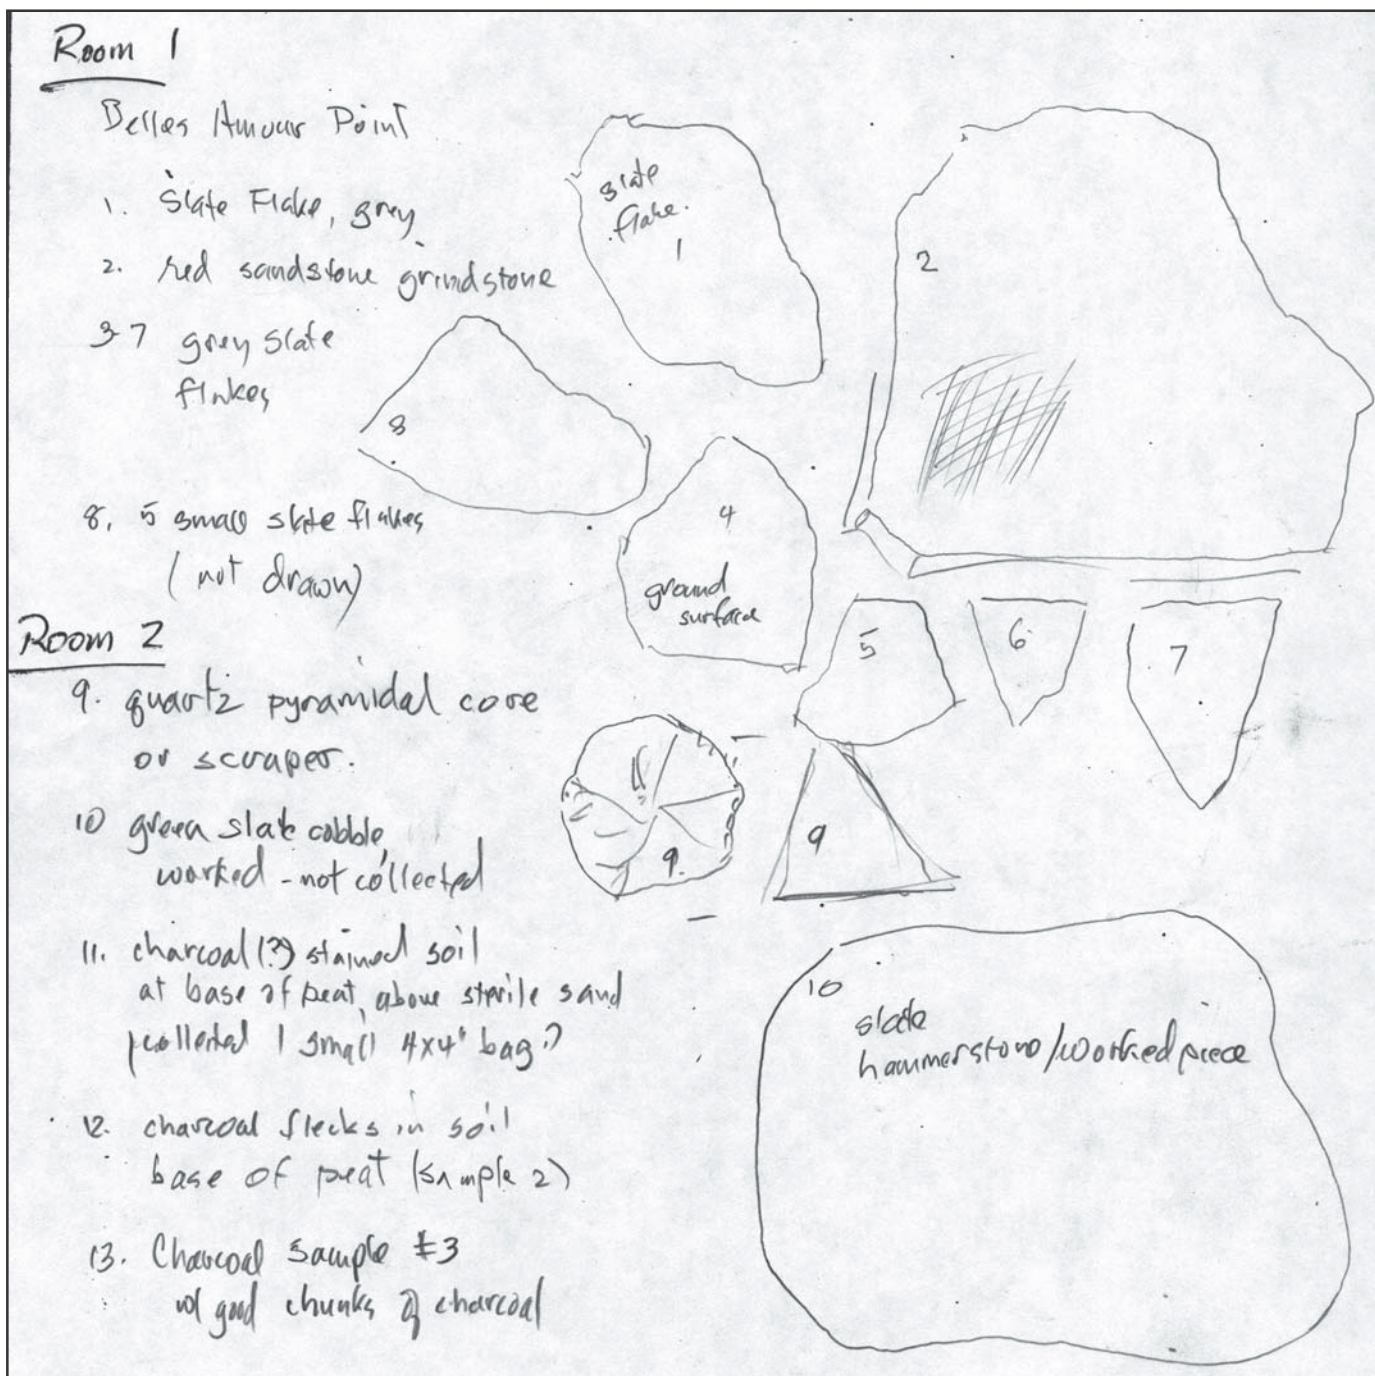 Room 1
Belles Amour Point
1. Slate Flake, grey
2. red sandstone grindstone
3-7 grey slate
flakes
8. 5 small slate flakes
(not drawn)
slate
flake.
1
2
8
4
ground
surface
5
6
7
Room 2
9. quartz pyramidal core
or scraper.
10 green slate cobble,
worked - not collected
11. charcoal (?) stained soil
at base of peat, above sterile sand
collected 1 small 4x4" bag
12. charcoal flecks in soil
base of peat (sample 2)
13. Charcoal sample #3
w/ good chunks of charcoal
9.
9
10
slate
hammerstone/worked piece